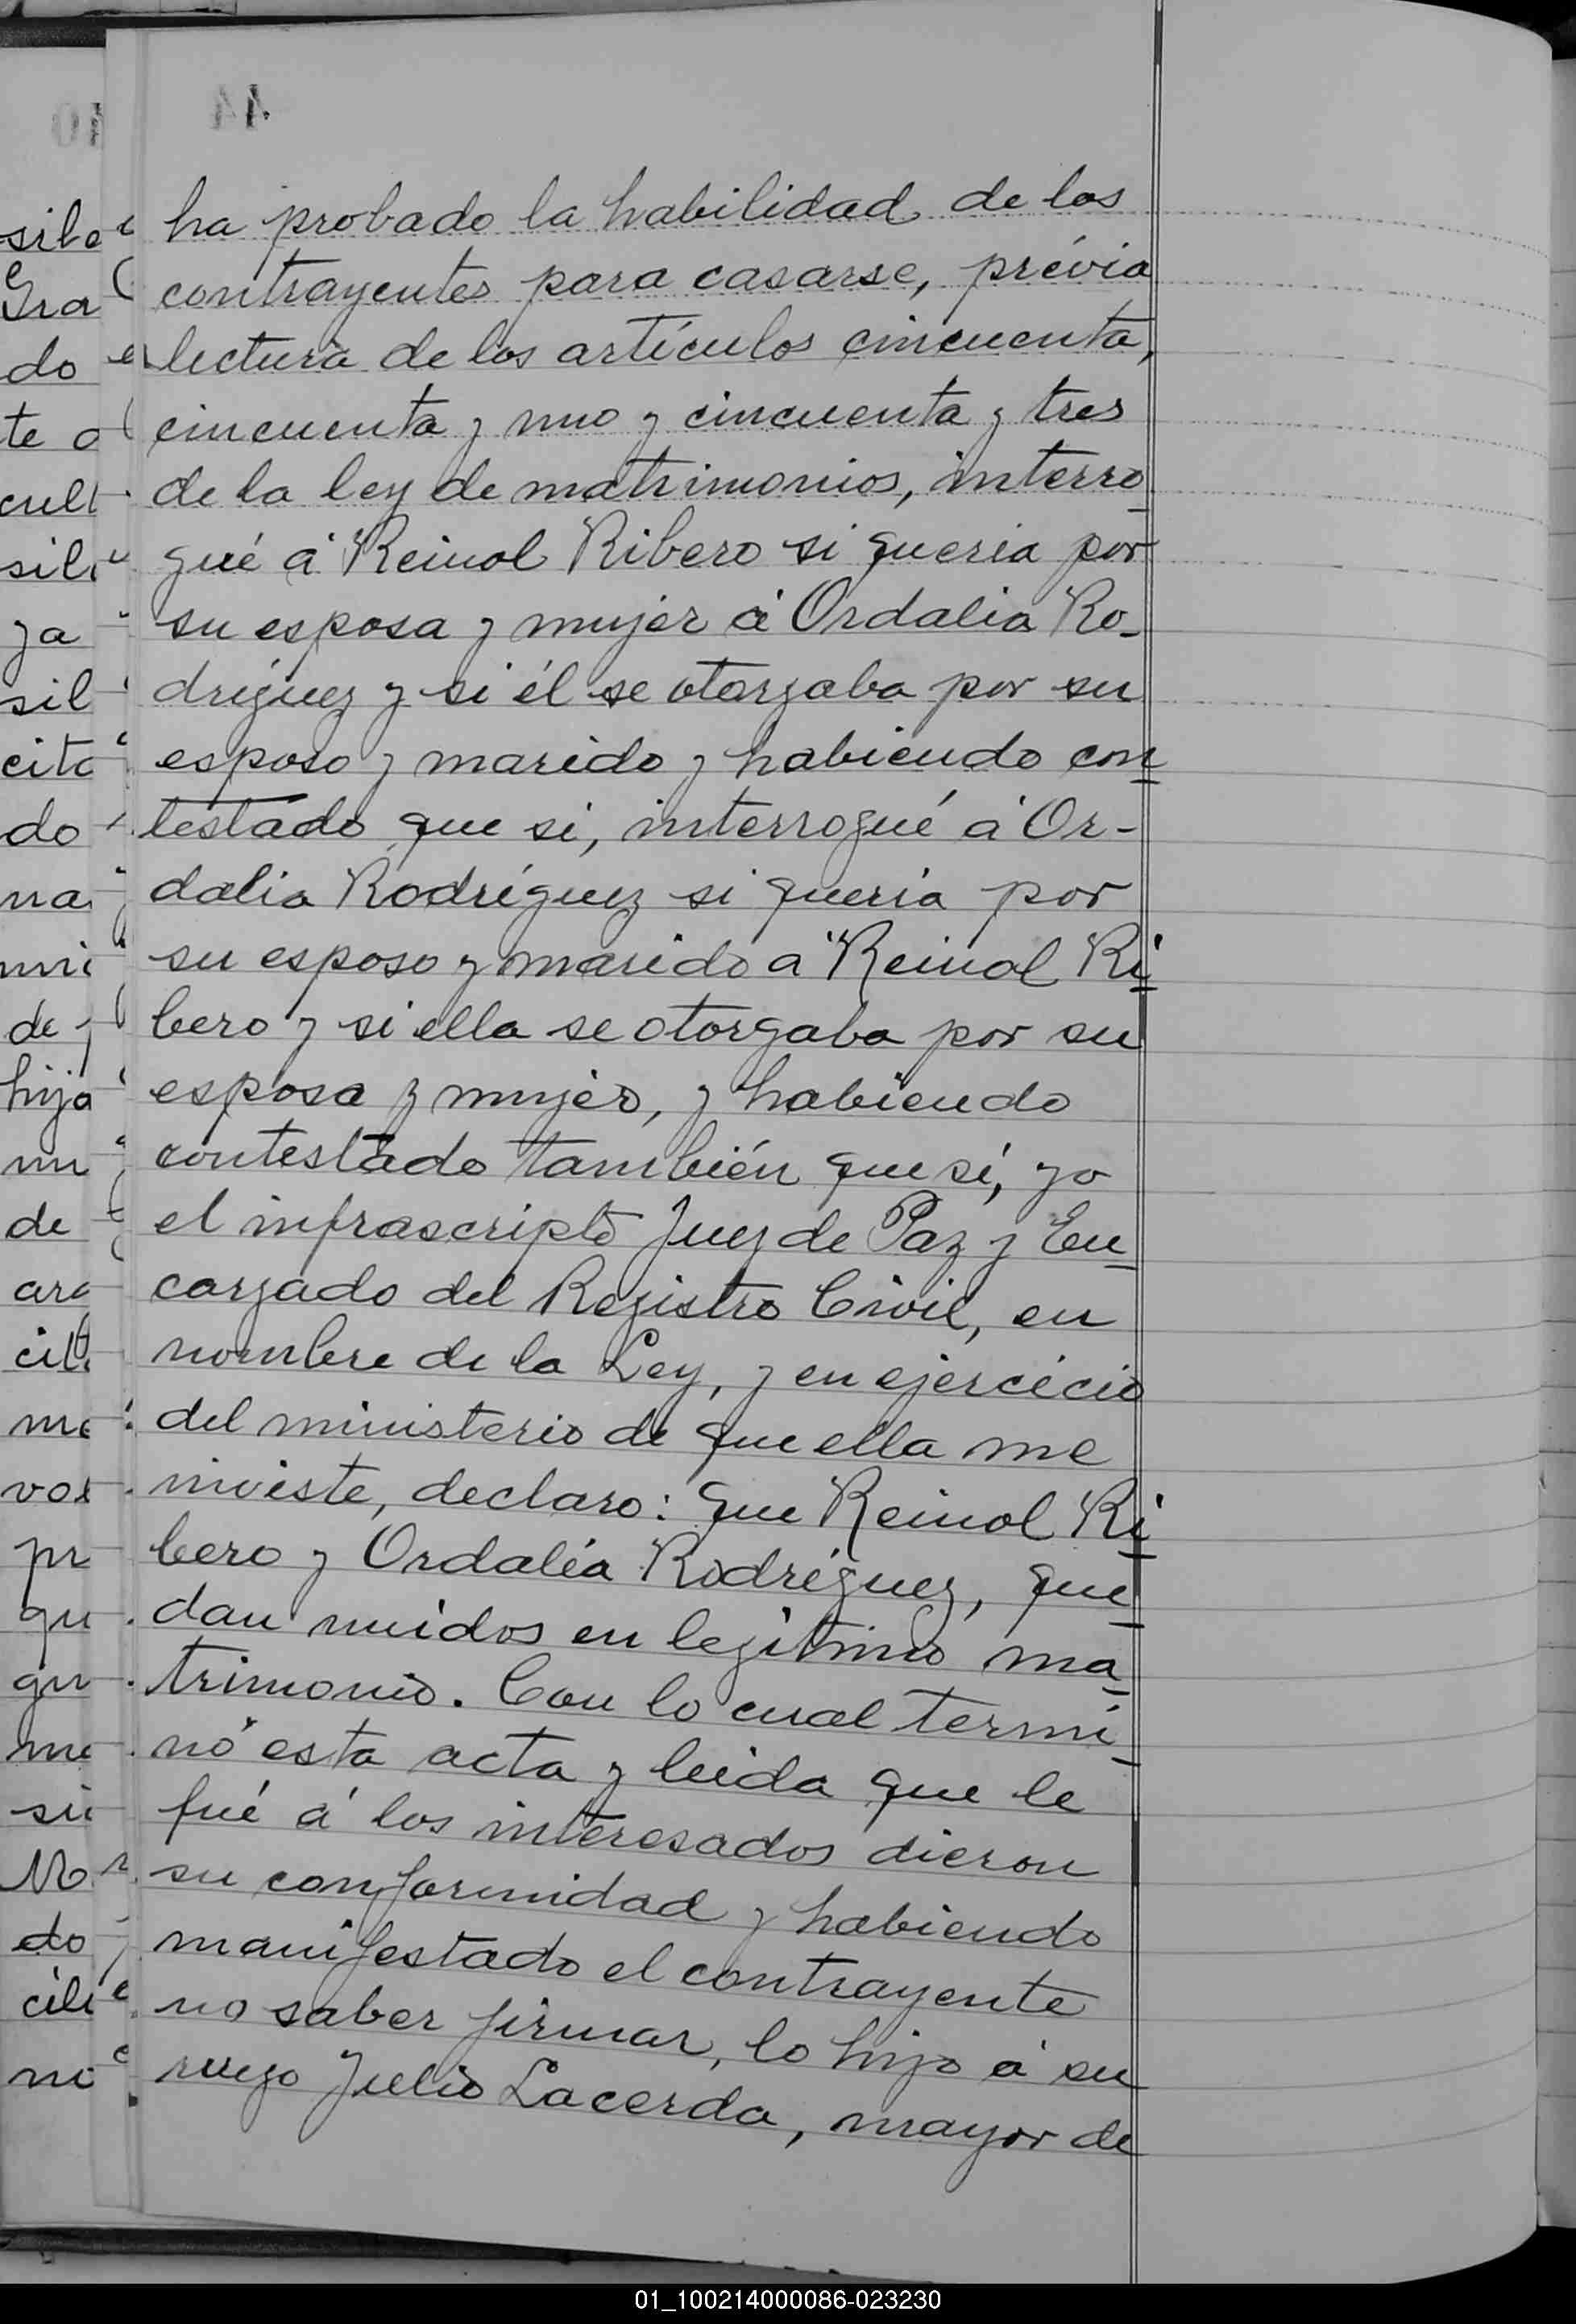 44
ha probado la habilidad de los
contrayentes para casarse, prévia
lectura de los artículos cincuenta,
cincuenta y uno y cincuenta y tres
de la ley de matrimonios, interro-
gué á Reinol Ribero si queria por
su esposa y mujer á Ordalia Ro-
dríguez y si él se otorgaba por su
esposo y marido y habiendo con-
testado que si, interrogué á Or-
dalia Rodríguez si queria por
su esposo y marido a Reinol Ri-
bero y si ella se otorgaba por su
esposa y mujer, y habiendo
contestado también que sí, yo
el infrascripto Juez de Paz y En-
cargado del Registro Civil, en
nombre de la Ley, y en ejercicio
del ministerio de que ella me
inviste, declaro: que Reinol Ri-
bero y Ordalia Rodríguez, que-
dan unidos en legitimo ma-
trimonio. Con lo cual termi-
nó esta acta y leida que le
fué á los interesados dieron
su conformidad y habiendo
manifestado el contrayente
no saber firmar, lo hizo á su
ruego Julio Lacerda, mayor de
01_100214000086-023230